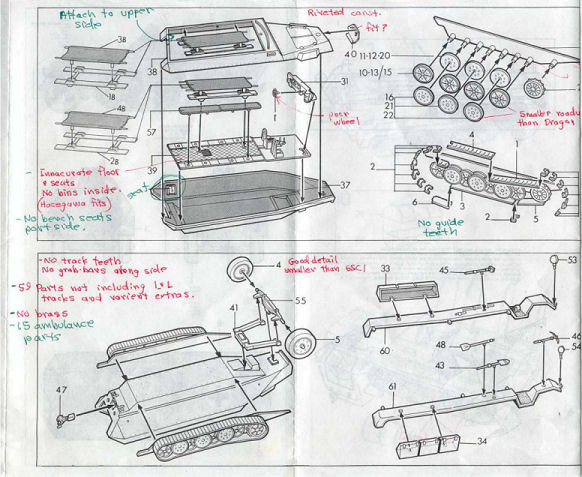 Attach to upper
side
Riveted const.
fit?
38
18
48
28
38
57
39
40
31
poor
wheel
37
seat
- Innacurate floor
& seats
No bins inside.
(Hasegawa fits)
- No bench seats
port side.
11-12-20
10-13/15
16
21
22
Smaller roadw
than Dragon
4
1
2
2
6
3
2
5
No guide
teeth
- No track teeth
No grab-bars along side
- 59 Parts not including L&L
tracks and varient extras.
- No brass
- 15 ambulance
parts
Good detail
smaller than ESCI
4
55
41
5
47
33
45
53
60
48
43
46
54
61
34